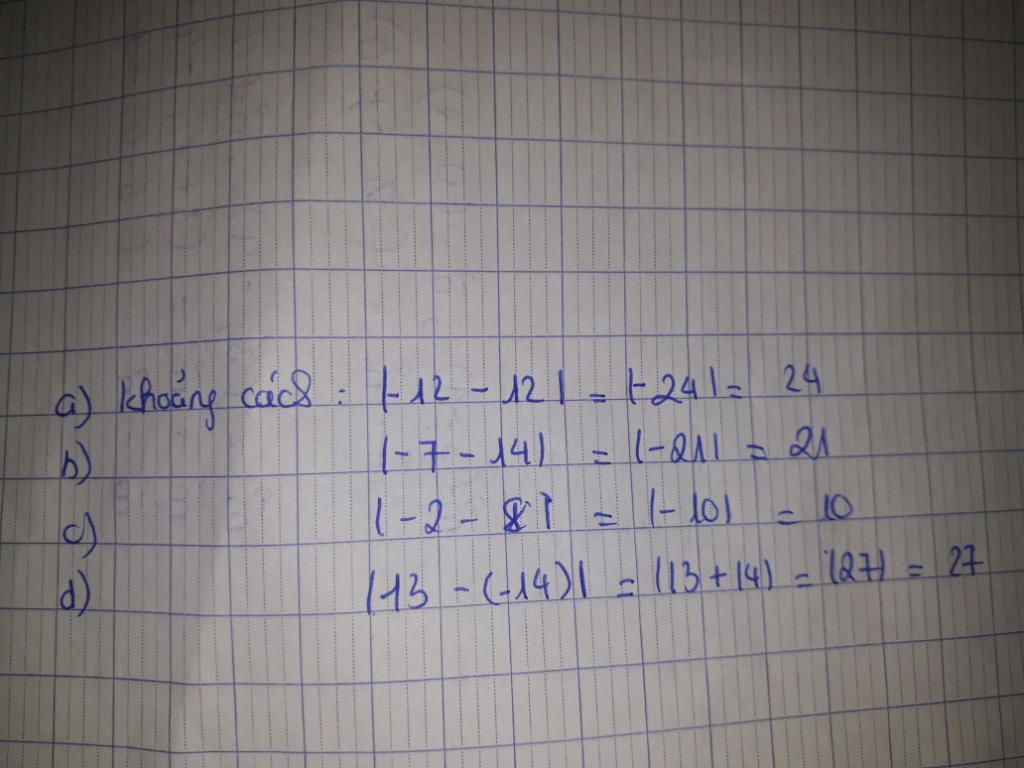 a) khoảng cách : |-12 - 12| = |-24| = 24
b) |-7 - 14| = |-21| = 21
c) |-2 - 8| = |-10| = 10
d) |13 - (-14)| = |13 + 14| = |27| = 27